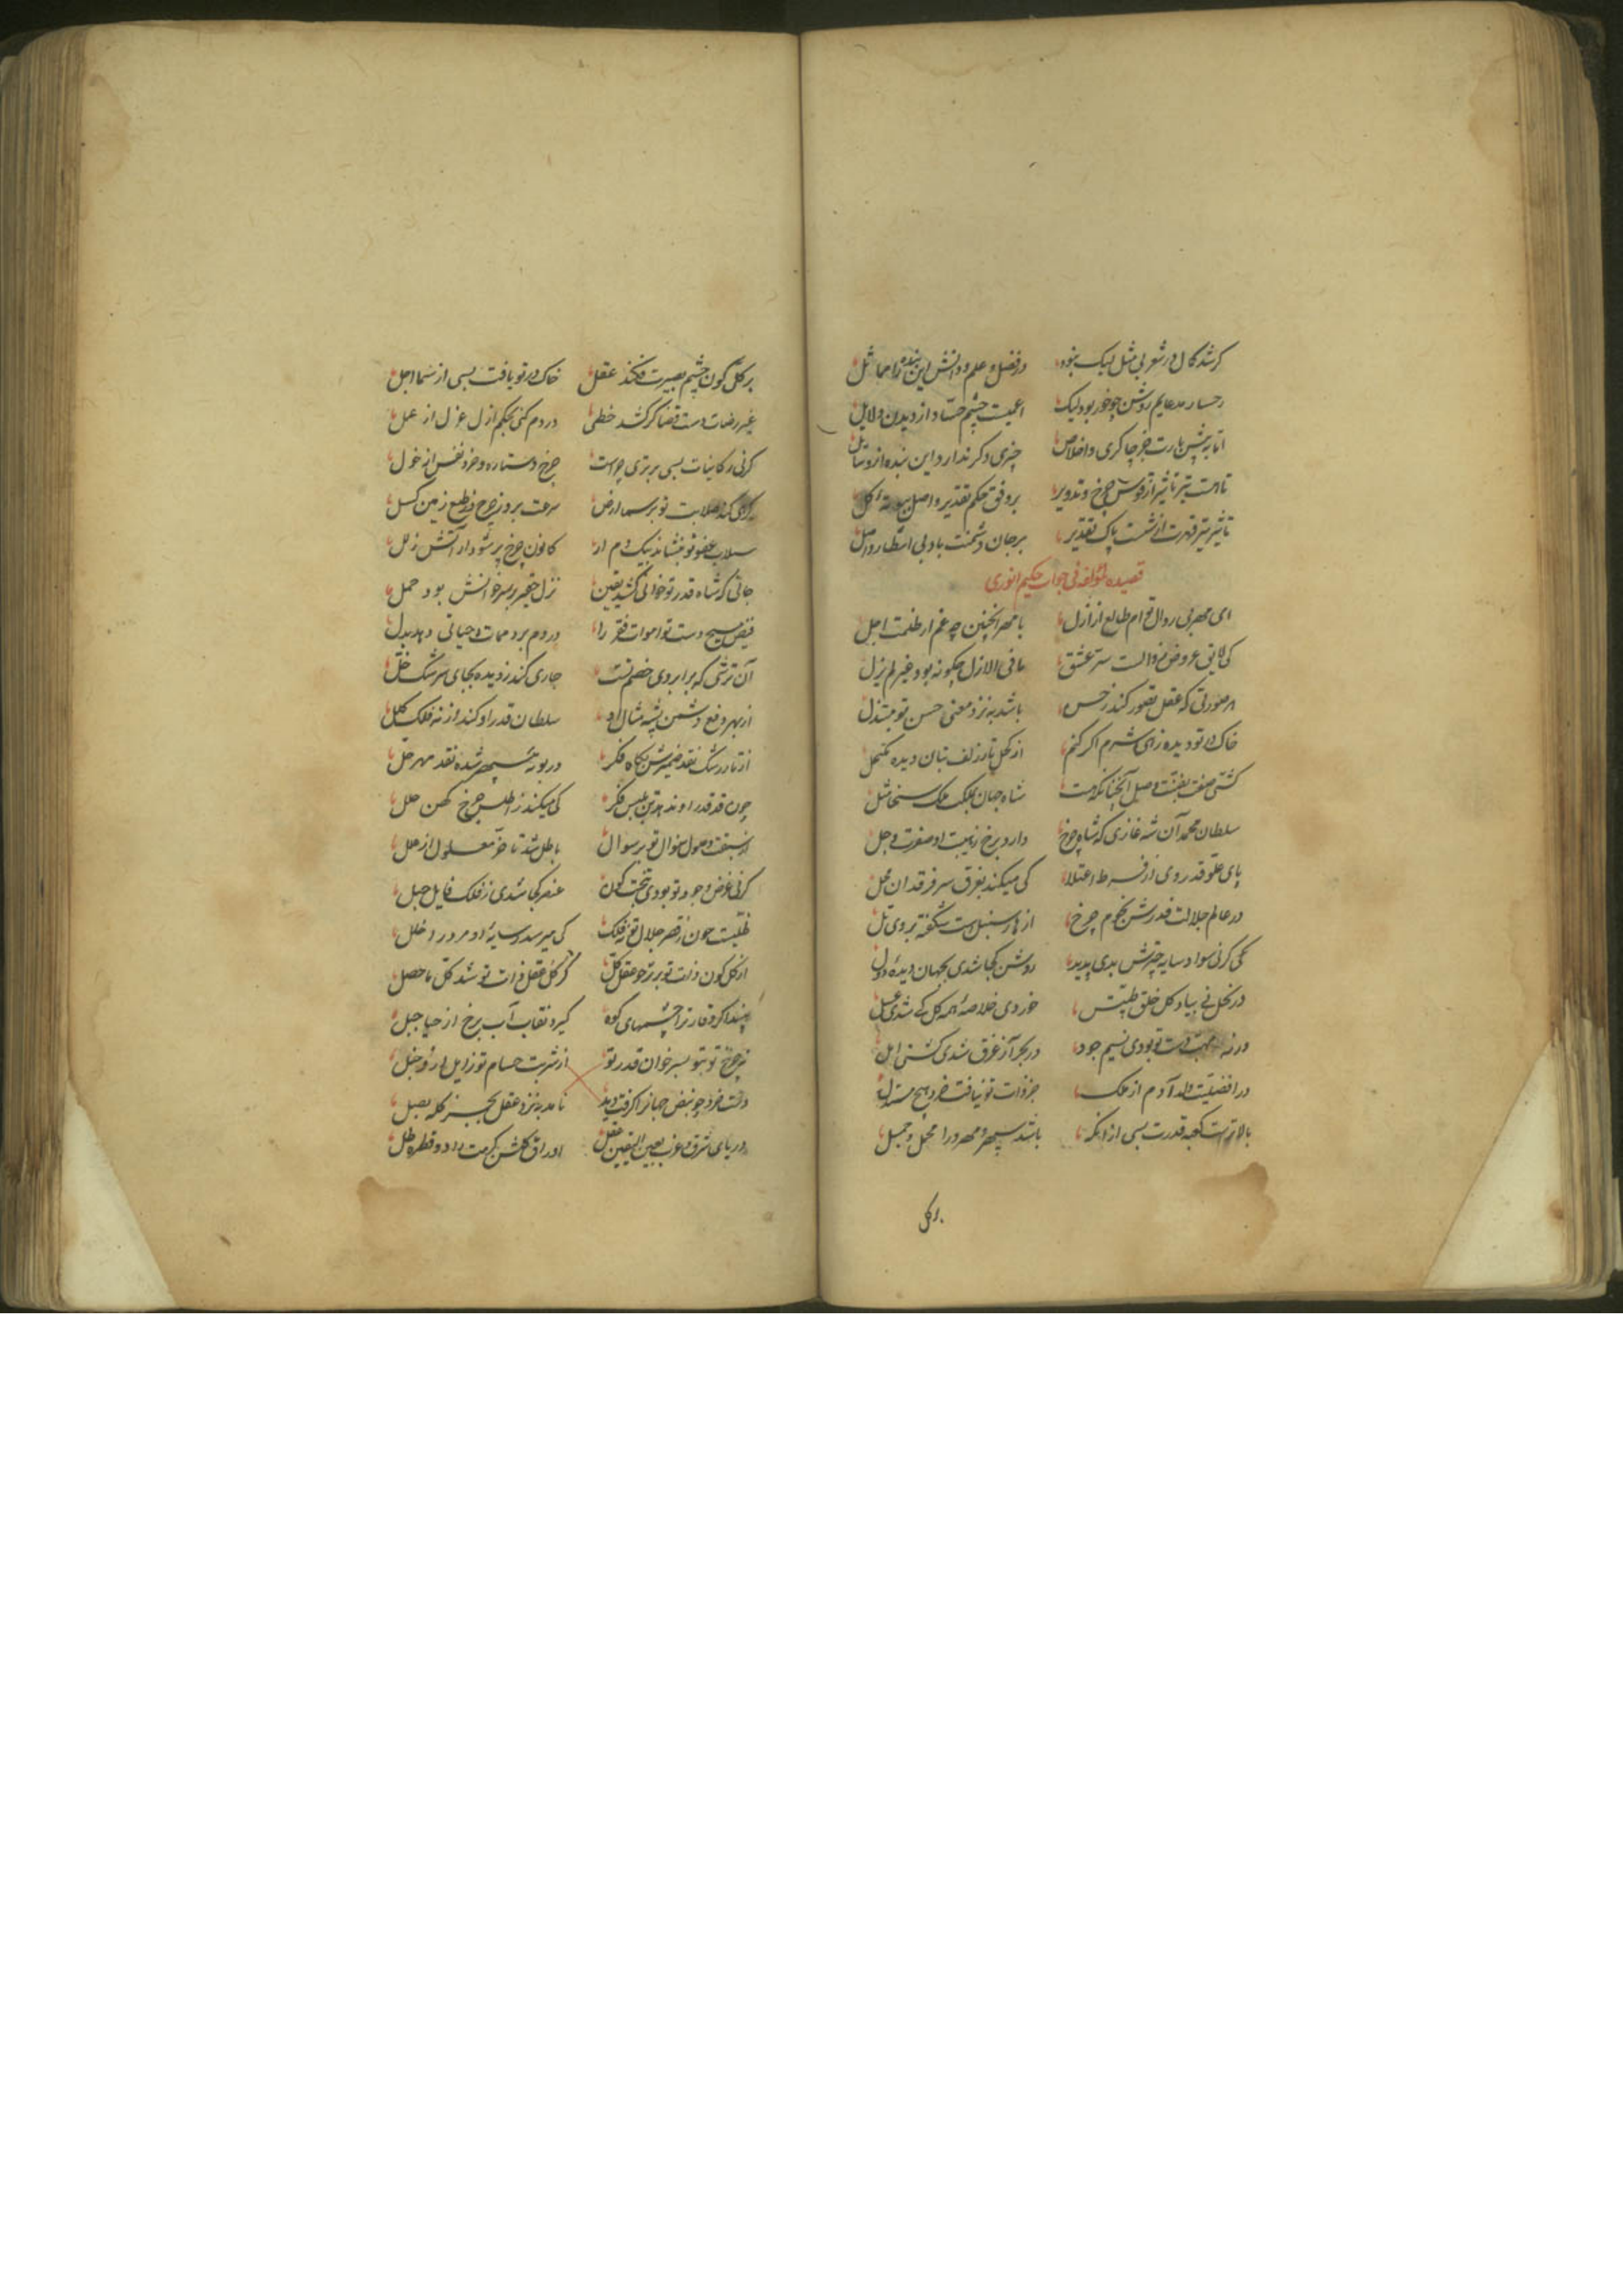 کر شد کمال در شعر بی مثل لیک نبود در فضل و علم و دانش این بنده را مماثل
رخسار مدعایم روشن چو خور بود لیک اعمیست چشم حساد از دیدن دلایل
اما به پیش رایت جز چاکری و اخلاص چیزی دکر ندارد این بنده از وسایل
تا هست تیر تاثیر از قوس چرخ و تدویر بر وفق حکم تقدیر واصل
تاثیر تیر قهرت از شست پاک تقدیر بر جان دشمنت باد بی انتظار واصل
قصیده لمؤلفه فی جواب حکیم انوری
ای مهر بی زوال توام طالع از ازل با مهر اینچنین چه غم از ظلمت اجل
کی لایق عروض زوالست سر عشق ما فی الازل چکونه بود غیر لم یزل
هر صورتی که عقل تصور کند ز حسن باشد به نزد معنی حسن تو مبتذل
خاک در تو دیده ز رای شرم اکر کنم از کحل تار زلف بتان دیده مکتحل
کشتی صفت بغیبت وصل آنچنانکه هست شاه جهان بملکت ملک سخا مثل
سلطان محمد آن شه غازی که شاه چرخ دارد برخ ز هیبت او صفرت وجل
پای علو قدر وی از فرط اعتلا کی میکند بفرق سر فرقدان محل
در عالم جلالت قدرش نجوم چرخ از هار سنبلست شکفته بروی تل
کی کرنی سواد سایه چترش بدی پدید روشن کجا شدی بجهان دیده دول
در نحل نی بیاد کل خلق طیبش خوردی خلاصه همه کل کی شدی عسل
ور نه مهب دست تو بودی نسیم جود در بحر آز غرق شدی کشتی امل
در افضلیت ولد آدم از ملک جز ذات تو نیافت خرد هیچ مستدل
بالاترست کعبه قدرت بسی ازانکه باشد سپهر و مهر ورا محمل و جمل
بر کل
بر کل کون چشم بصیرت فکند عقل خاک در تو یافت بسی از سما اجل
غیر رضات دست قضا کر کشد خطی در دم کنی بحکم ازل عزل از عمل
کرنی ز کاینات بسی برتری چراست چرخ و ستاره و خرد نفس از خول
کر کند صلابت تو بر سما و ارض سرعت برد ز چرخ و ز طبع زمین کسل
سیلاب عفو تو بنشاند بیک دم ار کانون چرخ پر شود از آتش زحل
جائی که شاه قدر تو خوانی کشد یقین نزل حقیر بر سر خوانش بود حمل
فیض مسیح دست تو اموات فقر را در دم برد ممات و حیاتی دهد بدل
آن ترشی که بر ابروی خصم تست جاری کند ز دیده بجای سرشک خل
از بهر دفع دشمن پشه مثال او سلطان قدر او کند از نه فلک کلل
از تاب رشک نقد ضمیرش بکاه فکر در بوته سپهر شده نقد مهر حل
چون قد قدر او ندهد تن بلبس فکر کی میکند ز اطلس چرخ کهن حلل
از سبقت وصول نوال تو بر سوال باطل شد تاخر معلول از علل
کرنی غرض وجود تو بودی ز تحت کون عنصر کجا شدی ز فلک قابل حبل
ظلیست چون ز قصر جلال تو نه فلک کی میرسد بسایه او مرور خلل
از کل کون ذات تو برتر چو عقل کل کز کل عقل ذات تو شد کل ما حصل
بیند اکر وقار ترا چشمهای کوه کیرد نقاب آب برخ از حیا جبل
نه چرخ تو بتو بسر خوان قدر تو از شربت حسام تو زایل ازو خبل
دست خرد چو نبض جهانرا کرفت دید نامد به نزد عقل بجز کله بصل
دریای شرق و غرب بعین الیقین عقل اوراق کلشن کرمت را دو قطره طل